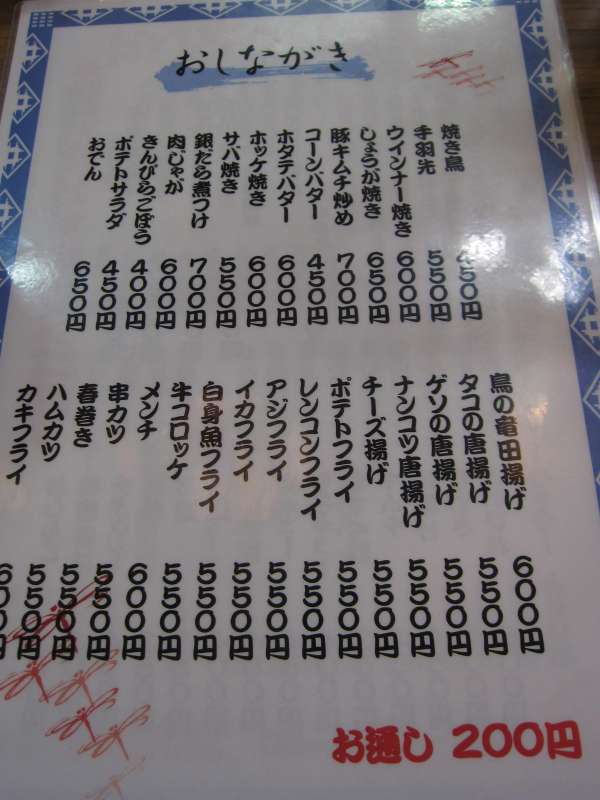 おしながき
焼き鳥 450円
手羽先 550円
ウインナー焼き 600円
しょうが焼き 650円
豚キムチ炒め 700円
コーンバター 450円
ホタテバター 600円
ホッケ焼き 600円
サバ焼き 550円
銀だら煮つけ 700円
肉じゃが 600円
きんぴらごぼう 400円
ポテトサラダ 450円
おでん 650円
鳥の竜田揚げ 600円
タコの唐揚げ 550円
ゲソの唐揚げ 550円
ナンコツ唐揚げ 550円
チーズ揚げ 550円
ポテトフライ 550円
レンコンフライ 550円
アジフライ 550円
イカフライ 550円
白身魚フライ 550円
牛コロッケ 550円
メンチ 600円
串カツ 550円
春巻き 550円
ハムカツ 550円
カキフライ 600円
お通し 200円